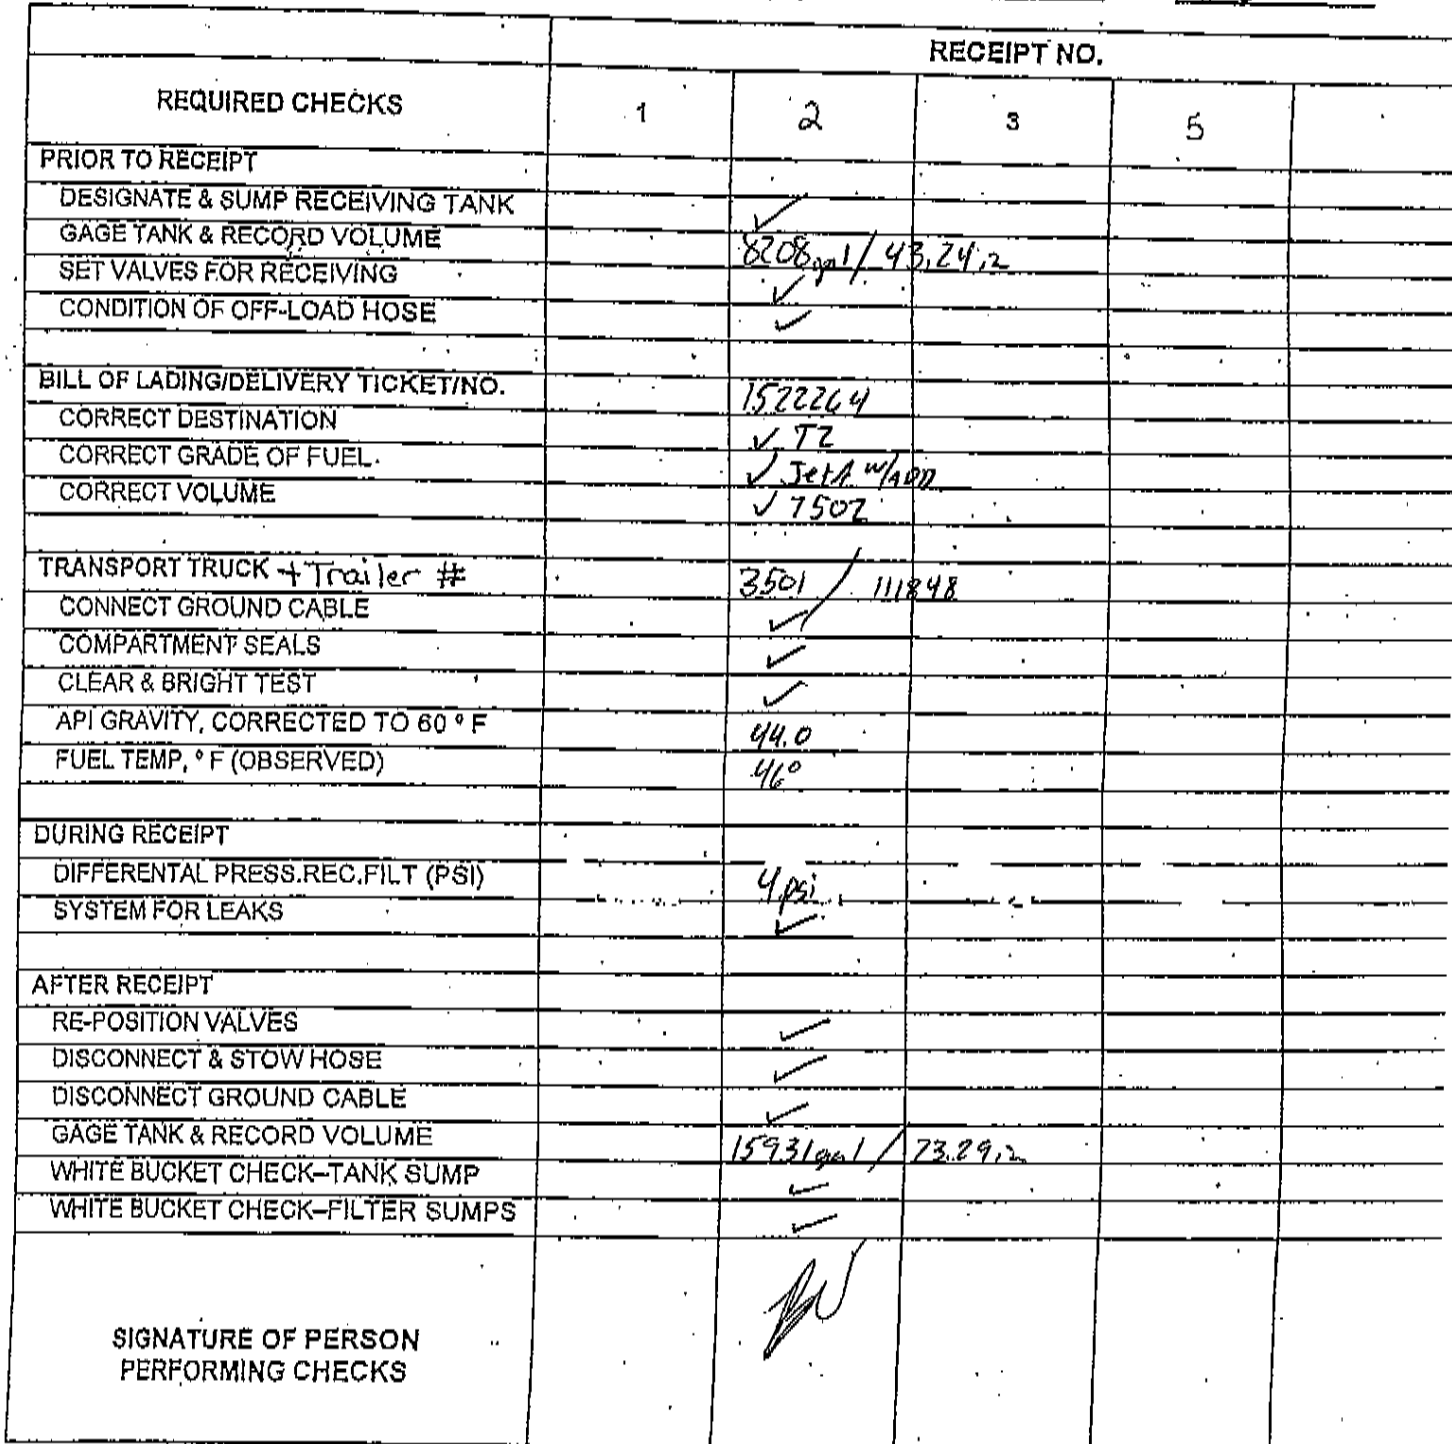 RECEIPT NO.
REQUIRED CHECKS 1 2 3 5
PRIOR TO RECEIPT
DESIGNATE & SUMP RECEIVING TANK ✓
GAGE TANK & RECORD VOLUME 8208gal / 43.24in
SET VALVES FOR RECEIVING ✓
CONDITION OF OFF-LOAD HOSE ✓
BILL OF LADING/DELIVERY TICKET/NO. 1522264
CORRECT DESTINATION ✓ T2
CORRECT GRADE OF FUEL. ✓ Jet A w/ADD
CORRECT VOLUME ✓ 7502
TRANSPORT TRUCK + Trailer # 3501 / 111848
CONNECT GROUND CABLE ✓
COMPARTMENT SEALS ✓
CLEAR & BRIGHT TEST ✓
API GRAVITY, CORRECTED TO 60 ° F 44.0
FUEL TEMP, ° F (OBSERVED) 46°
DURING RECEIPT
DIFFERENTAL PRESS.REC.FILT (PSI) 4 psi
SYSTEM FOR LEAKS ✓
AFTER RECEIPT
RE-POSITION VALVES ✓
DISCONNECT & STOW HOSE ✓
DISCONNECT GROUND CABLE ✓
GAGE TANK & RECORD VOLUME 15931gal / 73.29in
WHITE BUCKET CHECK–TANK SUMP ✓
WHITE BUCKET CHECK–FILTER SUMPS ✓
SIGNATURE OF PERSON
PERFORMING CHECKS